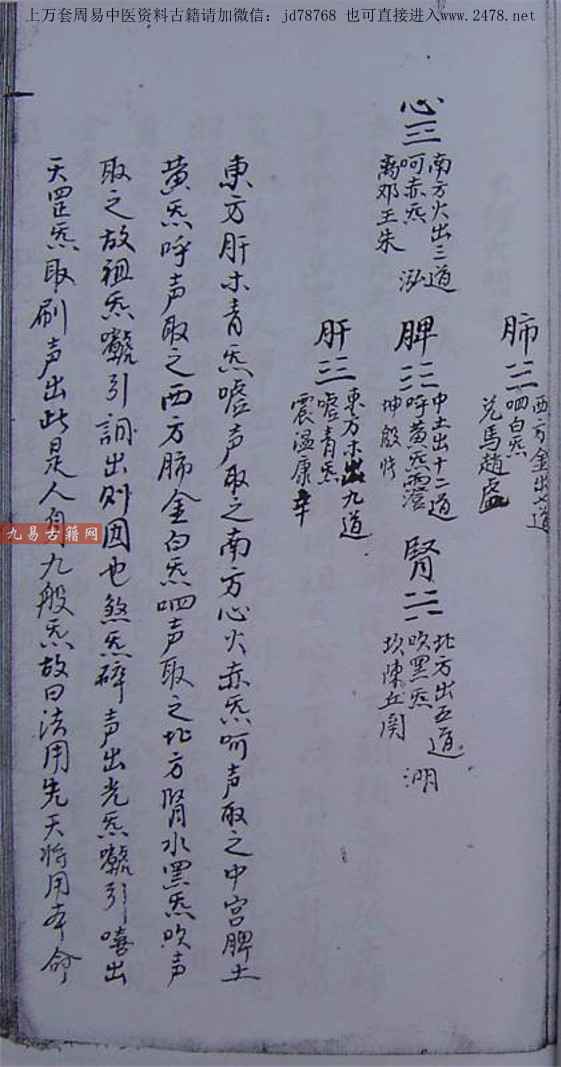 上万套周易中医资料古籍请加微信：jd78768 也可直接进入www.2478.net
肺
西方金出七道
呬白炁
兌馬趙盧
心
南方火出三道
呵赤炁
离邓王朱
泓
脾
中土出十二道
呼黄炁
坤殷
腎
北方出五道
吹黑炁
坎陳
湖
肝
東方木出九道
嘘青炁
震温康辛
東方肝木青炁嘘声取之南方心火赤炁呵声取之中宫脾土
黄炁呼声取之西方肺金白炁呬声取之北方腎水黑炁吹声
取之故祖炁引出则也煞炁声出光炁引嘻出
天罡炁取刷声出此是人有九般炁故曰法用先天将用本命
九易古籍网